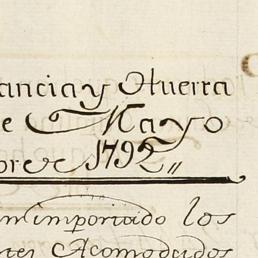 ancia y Guerra
e Mayo
bre 1792,,
importado los
tes Acomodados